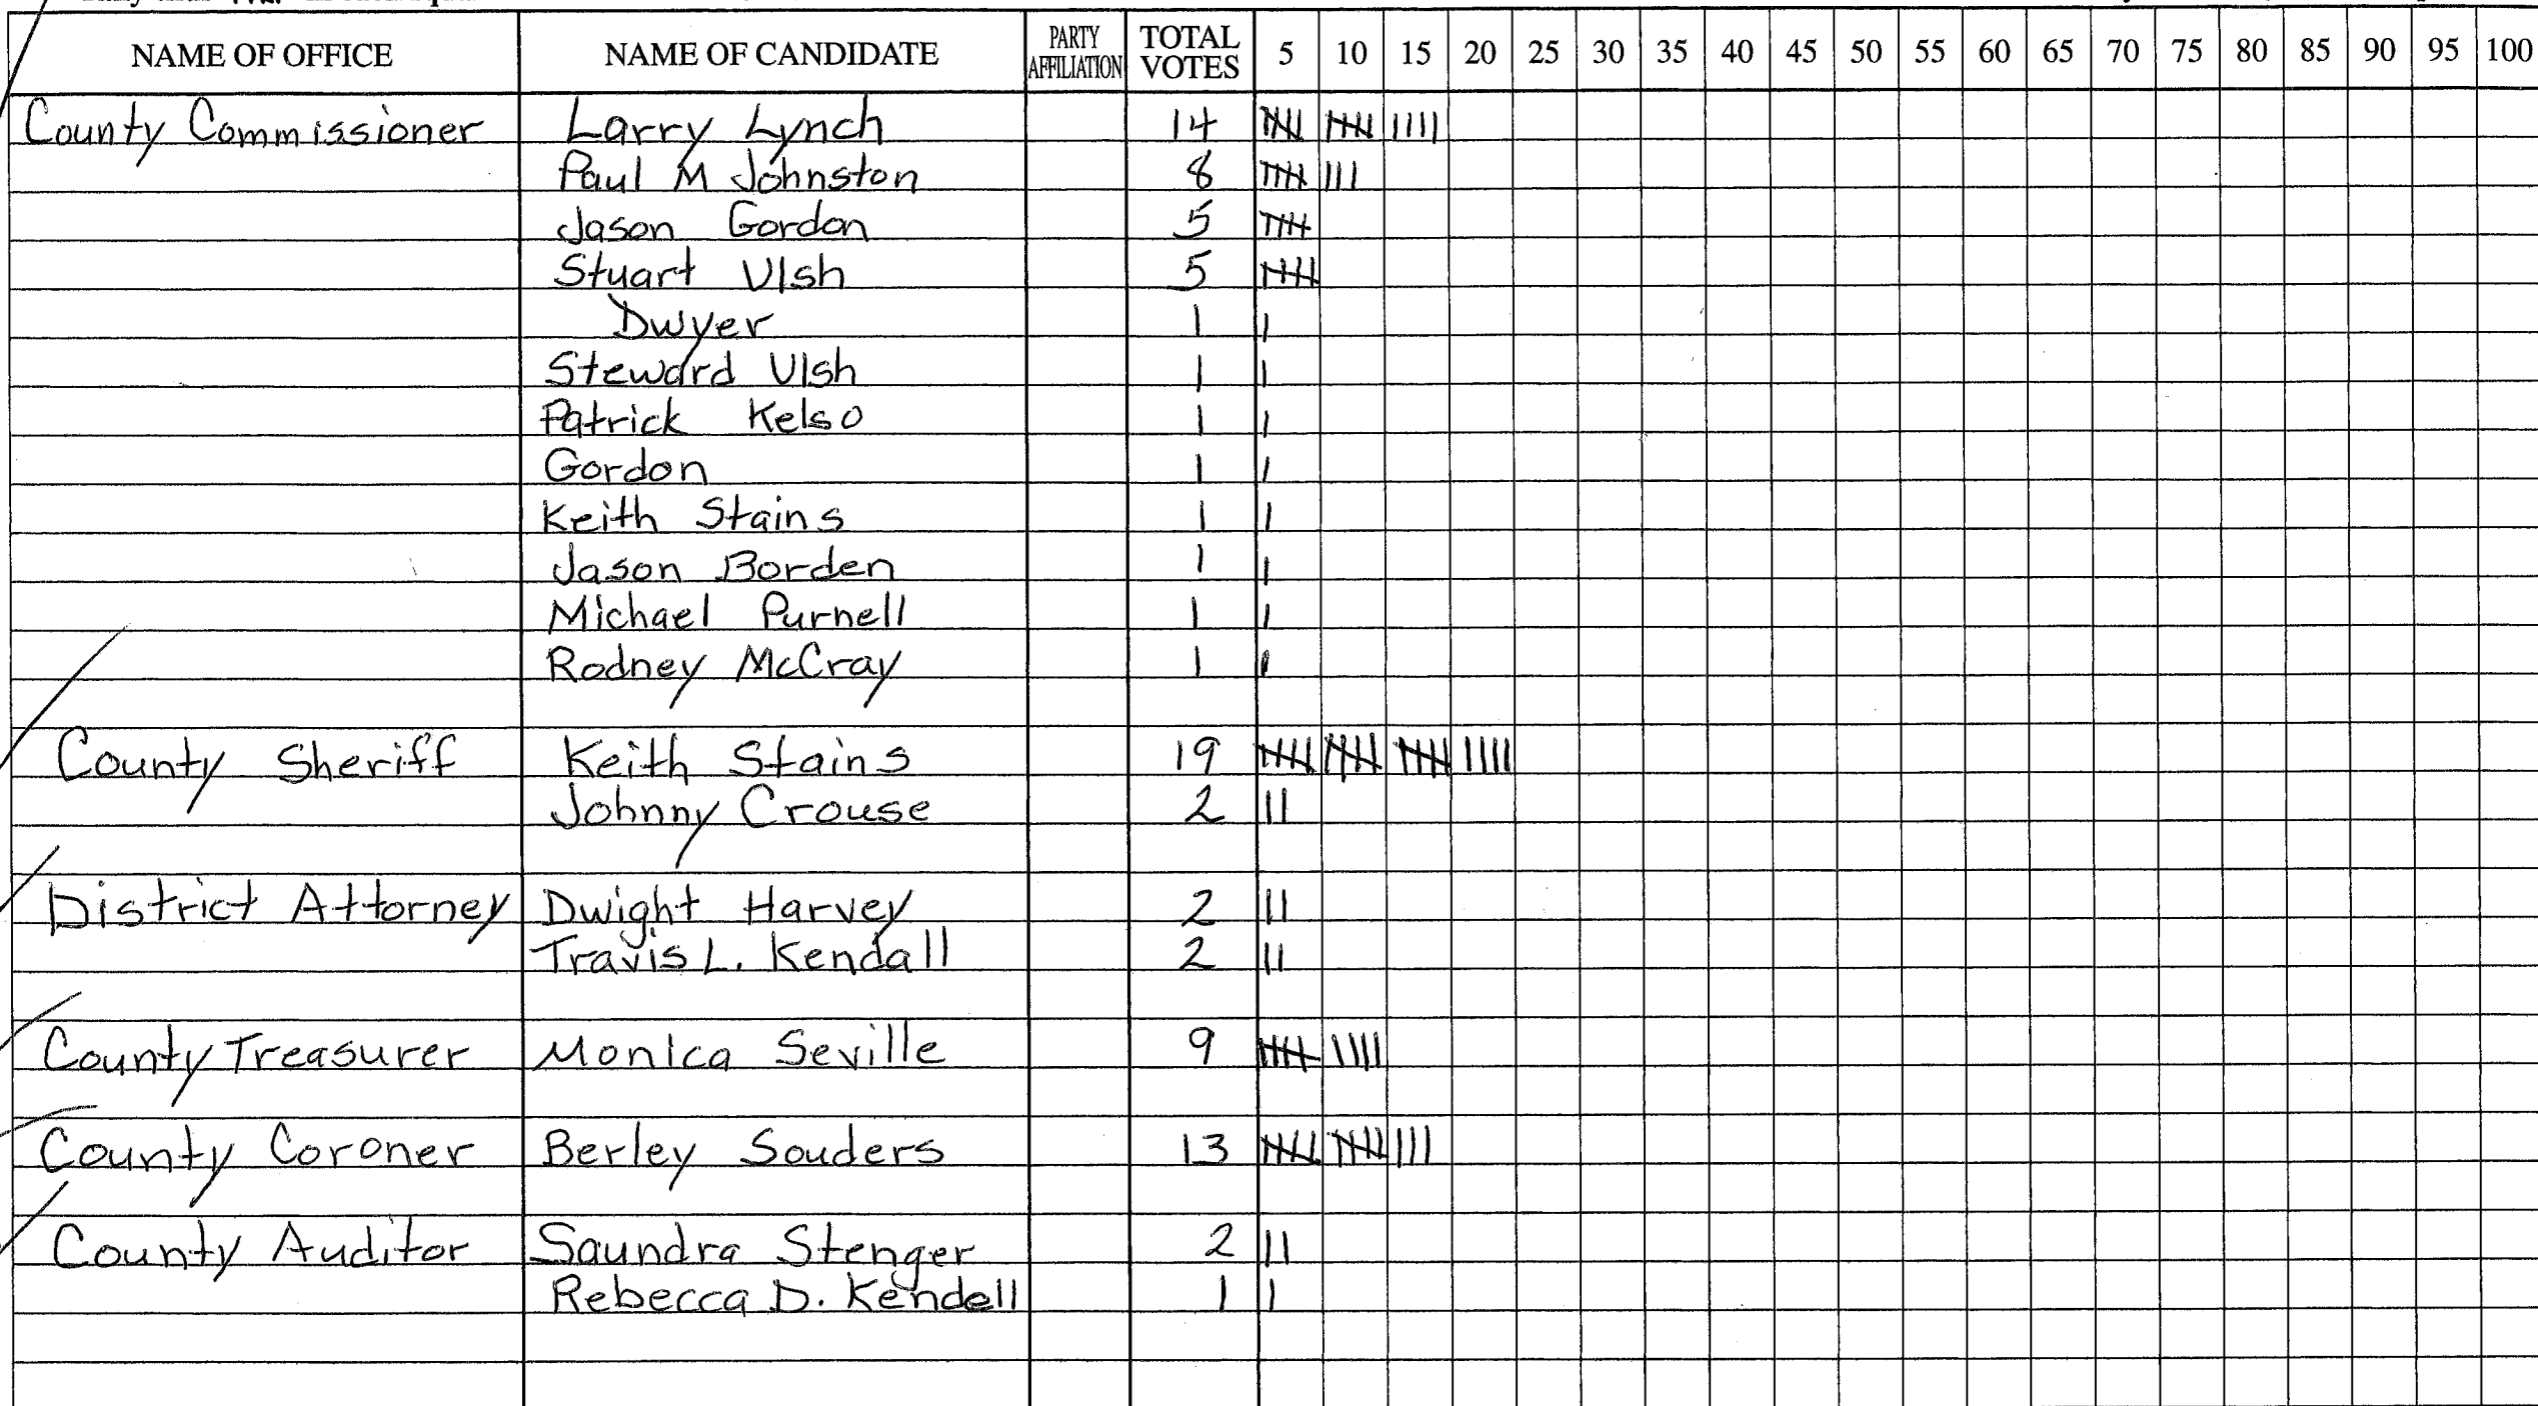 NAME OF OFFICE NAME OF CANDIDATE PARTY AFFILIATION TOTAL VOTES 5 10 15 20 25 30 35 40 45 50 55 60 65 70 75 80 85 90 95 100
County Commissioner Larry Lynch 14
Paul M Johnston 8
Jason Gordon 5
Stuart Ulsh 5
Dwyer 1
Steward Ulsh 1
Patrick Kelso 1
Gordon 1
Keith Stains 1
Jason Borden 1
Michael Purnell 1
Rodney McCray 1
County Sheriff Keith Stains 19
Johnny Crouse 2
District Attorney Dwight Harvey 2
Travis L. Kendall 2
County Treasurer Monica Seville 9
County Coroner Berley Souders 13
County Auditor Saundra Stenger 2
Rebecca D. Kendell 1